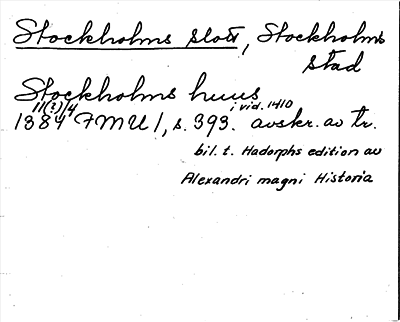 Stockholms slott, Stockholms
stad
Stockholms huus
11(?)/4 i vid. 1410
1384 FMU 1, s. 393. avskr. av tr.
bil. t. Hadorphs edition av
Alexandri magni Historia